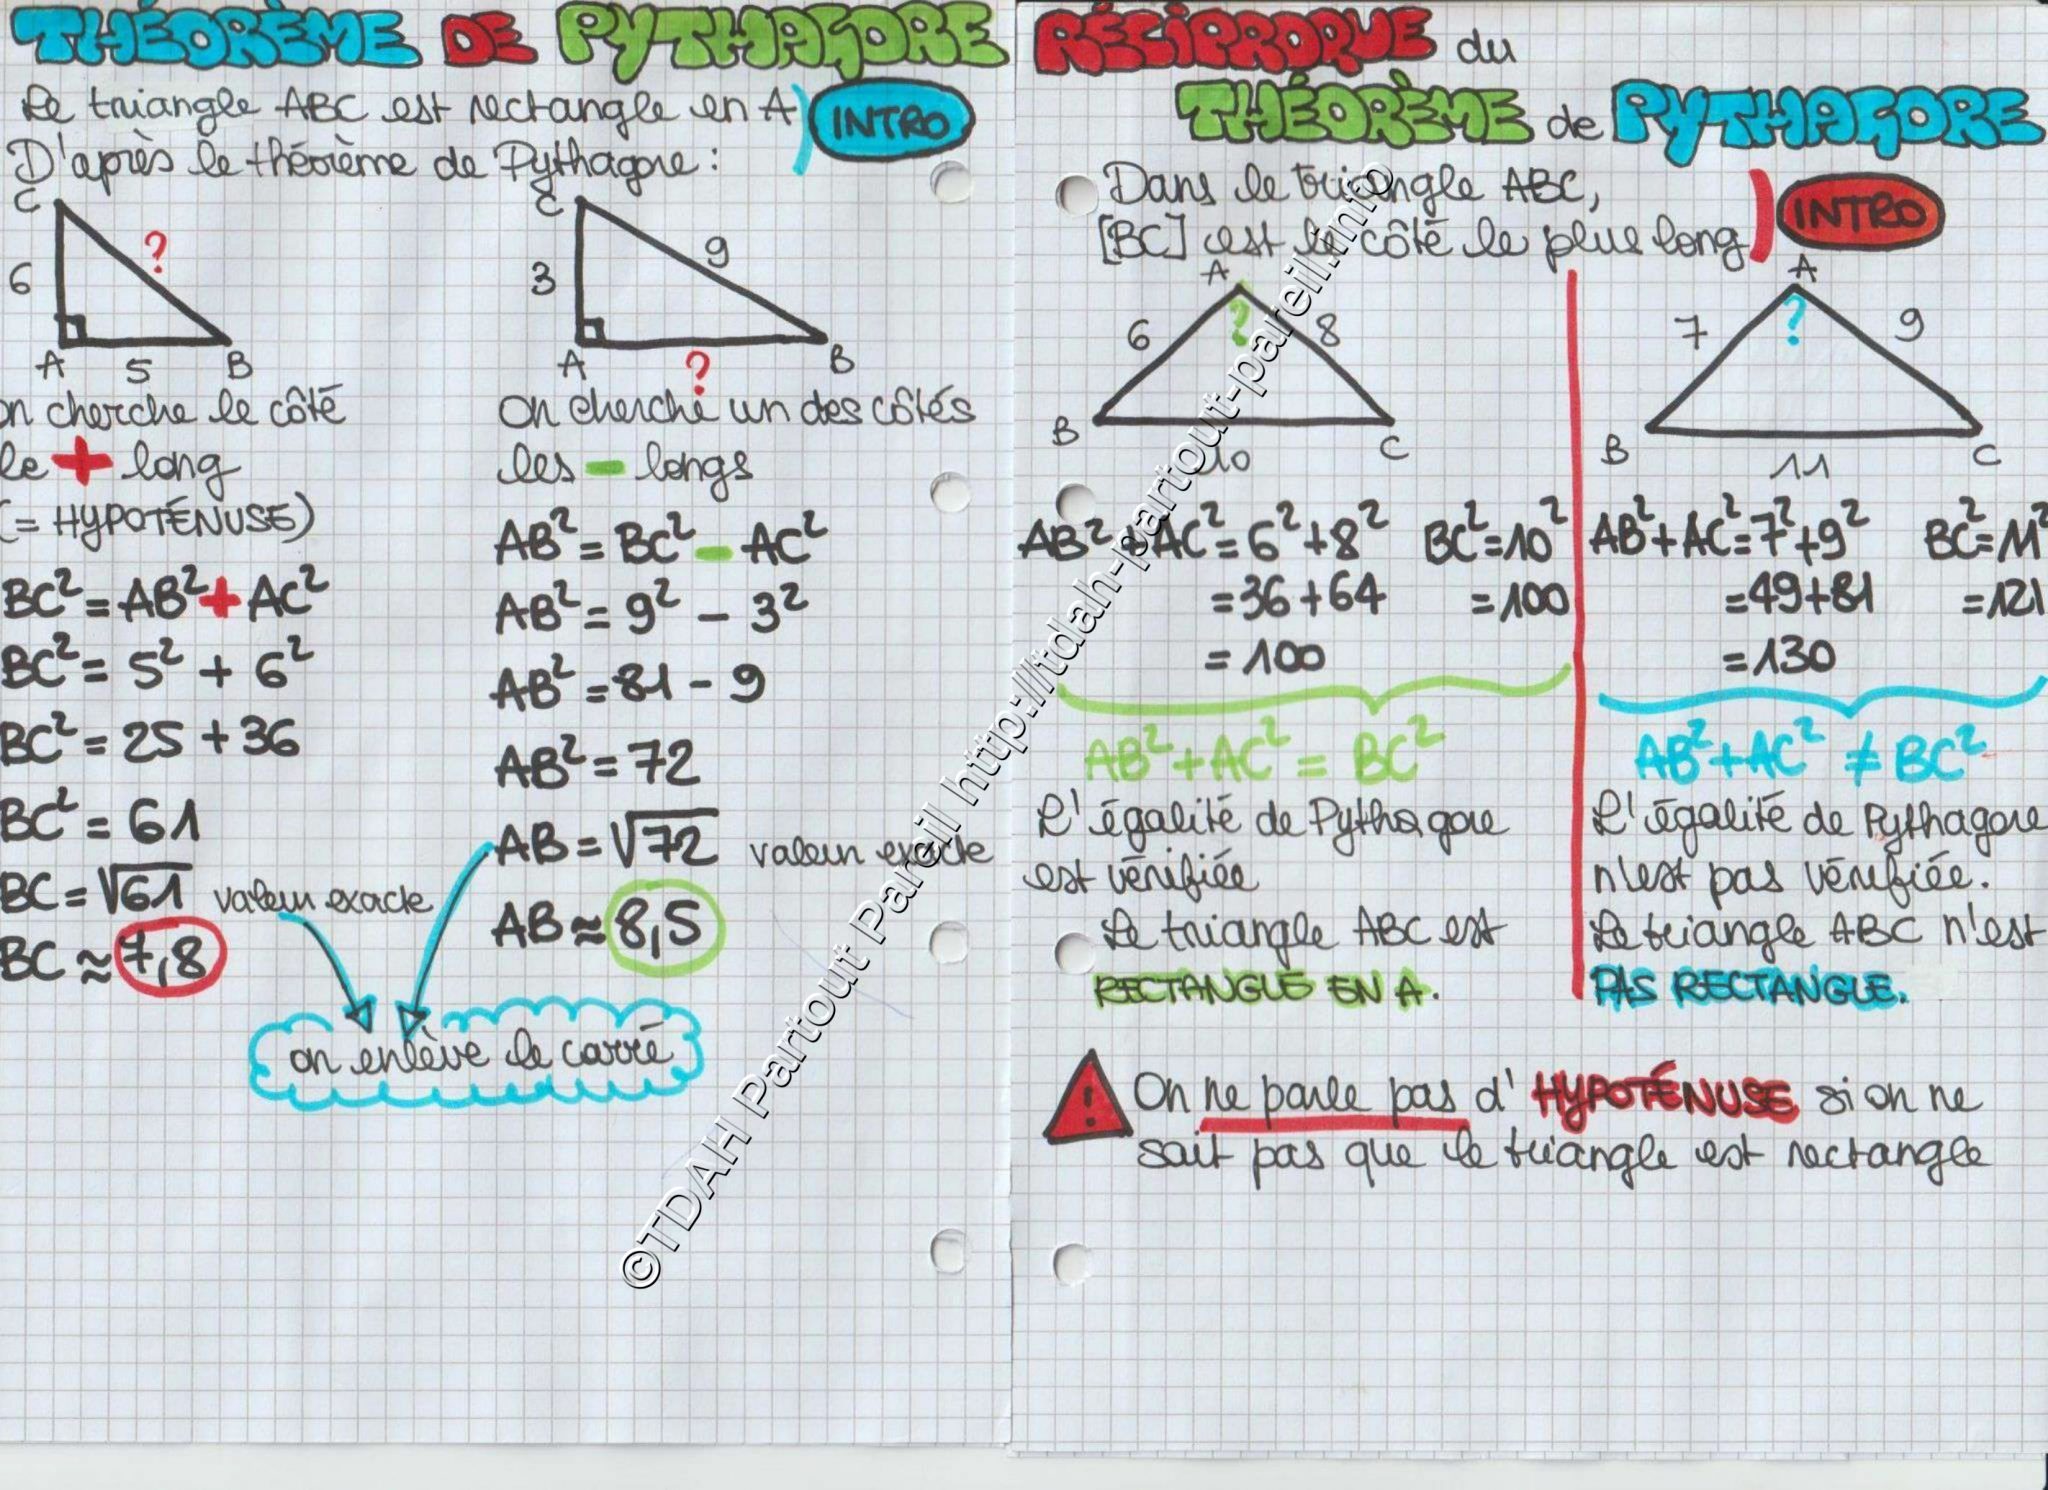 THÉORÈME DE PYTHAGORE
Le triangle ABC est rectangle en A
INTRO
D'après le théorème de Pythagore :
C
6
?
A
5
B
on cherche le côté
le + long
(= HYPOTÉNUSE)
BC² = AB² + AC²
BC² = 5² + 6²
BC² = 25 + 36
BC² = 61
BC = √61 valeur exacte
BC ≈ 7,8
C
3
9
A
?
B
on cherche un des côtés
les - longs
AB² = BC² - AC²
AB² = 9² - 3²
AB² = 81 - 9
AB² = 72
AB = √72 valeur exacte
AB ≈ 8,5
on enlève le carré
RÉCIPROQUE du
THÉORÈME de PYTHAGORE
Dans le triangle ABC,
[BC] est le côté le plus long
INTRO
A
6
?
8
B
10
C
AB² + AC² = 6² + 8² BC² = 10²
= 36 + 64 = 100
= 100
AB² + AC² = BC²
L'égalité de Pythagore
est vérifiée
Le triangle ABC est
RECTANGLE EN A.
A
7
?
9
B
11
C
AB² + AC² = 7² + 9² BC² = 11²
= 49 + 81 = 121
= 130
AB² + AC² ≠ BC²
L'égalité de Pythagore
n'est pas vérifiée.
Le triangle ABC n'est
PAS RECTANGLE.
! On ne parle pas d'HYPOTÉNUSE si on ne
sait pas que le triangle est rectangle
©TDAH Partout Pareil http://tdah-partout-pareil.info